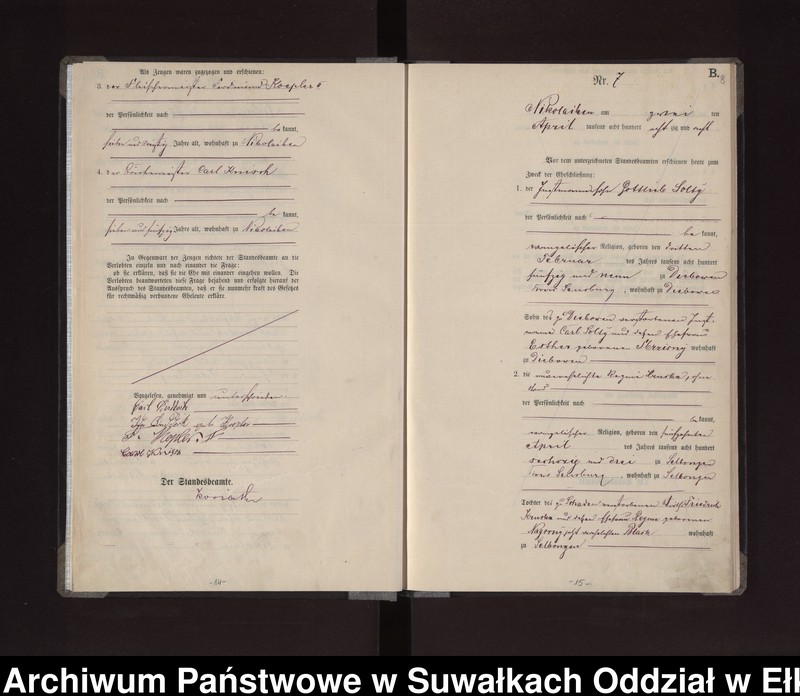 Als Zeugen waren zugezogen und erschienen:
3. der Fleischermeister Ferdinand Koepler
der Persönlichkeit nach
be kannt,
Jahre alt, wohnhaft zu Nikolaiken
4. der Carl Kirsch
der Persönlichkeit nach
be kannt,
sieben und fünfzig Jahre alt, wohnhaft zu Nikolaiken
In Gegenwart der Zeugen richtete der Standesbeamte an die
Verlobten einzeln und nach einander die Frage:
ob sie erklären, daß sie die Ehe mit einander eingehen wollen. Die
Verlobten beantworteten diese Frage bejahend und erfolgte hierauf der
Ausspruch des Standesbeamten, daß er sie nunmehr kraft des Gesetzes
für rechtmäßig verbundene Eheleute erkläre.
Vorgelesen, genehmigt und unterschrieben
Carl
geb.
F. Koepler
Carl Kirsch
Der Standesbeamte.
-14-
B.
8
Nr. 7
Nikolaiken am zwei ten
April tausend acht hundert acht zig und acht
Vor dem unterzeichneten Standesbeamten erschienen heute zum
Zweck der Eheschließung:
1. der Gottlieb Solty
der Persönlichkeit nach
be kannt,
evangelischer Religion, geboren den dritten
Februar des Jahres tausend acht hundert
fünfzig und neun zu Dieboven
Kreis Sensburg, wohnhaft zu Dieboven
Sohn des zu Dieboven verstorbenen
Carl Solty und dessen Ehefrau
Esther geborene wohnhaft
zu Dieboven
2. die unverehelichte Regine, ohne
Stand
der Persönlichkeit nach
be kannt,
evangelischer Religion, geboren den fünfzehnten
April des Jahres tausend acht hundert
sechszig und drei zu Selbongen
Kreis Sensburg, wohnhaft zu Selbongen
Tochter des zu verstorbenen Friedrich
und dessen Ehefrau Regine geborenen
Nagorny jetzt verehelichten wohnhaft
zu Selbongen
-15-
Archiwum Państwowe w Suwałkach Oddział w Eł